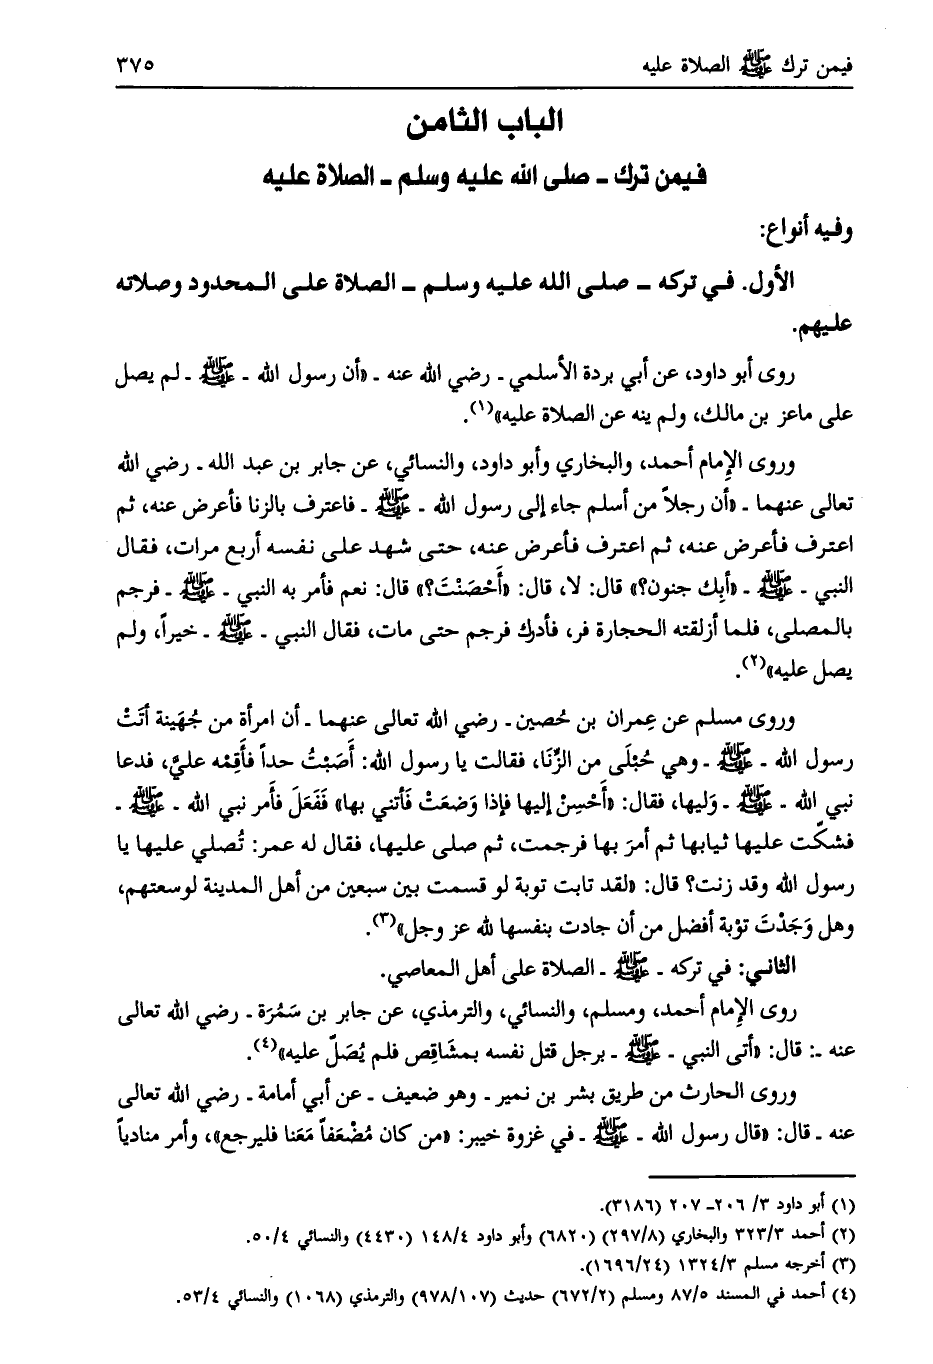 فيمن ترك ﷺ الصلاة عليه ٣٧٥
الباب الثامن
فيمن ترك ـ صلى الله عليه وسلم ـ الصلاة عليه
وفيه أنواع:
الأول. في تركه ـ صلى الله عليه وسلم ـ الصلاة على المحدود وصلاته
عليهم.
روى أبو داود، عن أبي بردة الأسلمي ـ رضي الله عنه ـ «أن رسول الله ـ ﷺ ـ لم يصل
على ماعز بن مالك، ولم ينه عن الصلاة عليه»(١).
وروى الإمام أحمد، والبخاري وأبو داود، والنسائي، عن جابر بن عبد الله ـ رضي الله
تعالى عنهما ـ «أن رجلاً من أسلم جاء إلى رسول الله ـ ﷺ ـ فاعترف بالزنا فأعرض عنه، ثم
اعترف فأعرض عنه، ثم اعترف فأعرض عنه، حتى شهد على نفسه أربع مرات، فقال
النبي ـ ﷺ ـ «أبِك جنون؟» قال: لا، قال: «أَحْصَنْتَ؟» قال: نعم فأمر به النبي ـ ﷺ ـ فرجم
بالمصلى، فلما أزلقته الحجارة فر، فأدرك فرجم حتى مات، فقال النبي ـ ﷺ ـ خيراً، ولم
يصل عليه»(٢).
وروى مسلم عن عِمران بن حُصين ـ رضي الله تعالى عنهما ـ أن امرأة من جُهَينة أتَتْ
رسول الله ـ ﷺ ـ وهي حُبْلَى من الزِّنَا، فقالت يا رسول الله: أَصَبْتُ حداً فأَقِمْه عليَّ، فدعا
نبي الله ـ ﷺ ـ وَليها، فقال: «أَحْسِنْ إليها فإذا وَضعَتْ فَأتني بها» فَفَعَلَ فأَمر نبي الله ـ ﷺ ـ
فشكّت عليها ثيابها ثم أمرَ بها فرجمت، ثم صلى عليها، فقال له عمر: تُصلي عليها يا
رسول الله وقد زنت؟ قال: «لقد تابت توبة لو قسمت بين سبعين من أهل المدينة لوسعتهم،
وهل وَجَدْتَ توْبة أفضل من أن جادت بنفسها لله عز وجل»(٣).
الثاني: في تركه ـ ﷺ ـ الصلاة على أهل المعاصي.
روى الإمام أحمد، ومسلم، والنسائي، والترمذي، عن جابر بن سَمُرَة ـ رضي الله تعالى
عنه ـ: قال: «أتى النبي ـ ﷺ ـ برجل قتل نفسه بمشَاقِص فلم يُصَلّ عليه»(٤).
وروى الحارث من طريق بشر بن نمير ـ وهو ضعيف ـ عن أبي أمامة ـ رضي الله تعالى
عنه ـ قال: «قال رسول الله ـ ﷺ ـ في غزوة خيبر: «من كان مُضْعَفاً مَعَنا فليرجع»، وأمر منادياً
(١) أبو داود ٣/ ٢٠٦ـ ٢٠٧ (٣١٨٦).
(٢) أحمد ٣٢٣/٣ والبخاري (٢٩٧/٨) (٦٨٢٠) وأبو داود ١٤٨/٤ (٤٤٣٠) والنسائي ٥٠/٤.
(٣) أخرجه مسلم ١٣٢٤/٣ (١٦٩٦/٢٤).
(٤) أحمد في المسند ٨٧/٥ ومسلم (٦٧٢/٢) حديث (٩٧٨/١٠٧) والترمذي (١٠٦٨) والنسائي ٥٣/٤.